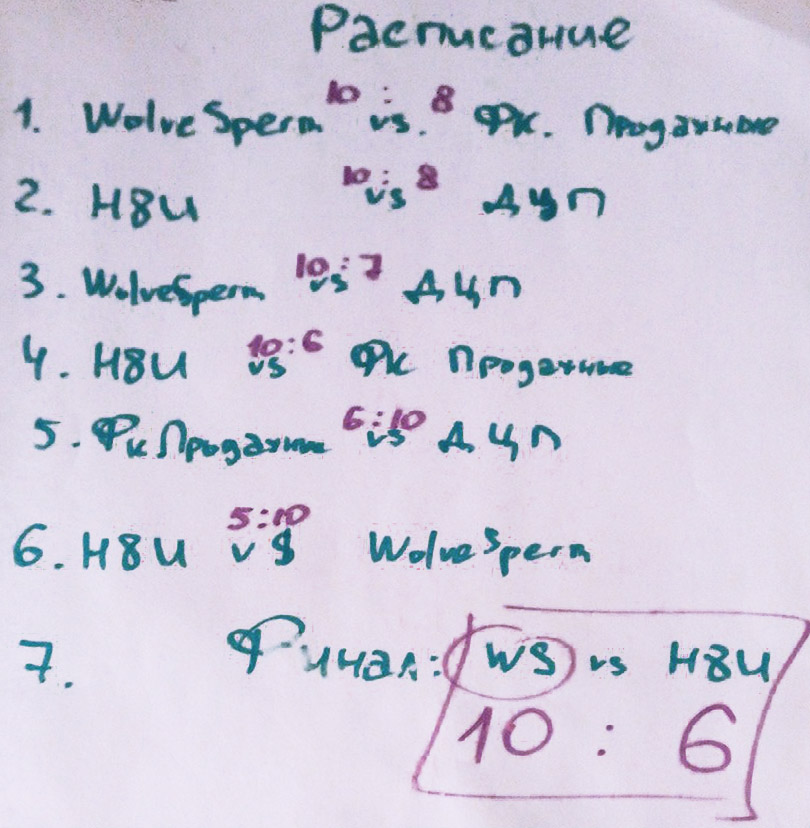 Расписание
1. WolveSperm 10 : 8 vs. ФК. Проданные
2. H8U 10 : 8 vs ДЦП
3. WolveSperm 10 : 7 vs ДЦП
4. H8U 10:6 vs ФК Проданные
5. ФК Проданные 6:10 vs ДЦП
6. H8U 5:10 vs WolveSperm
7. Финал: WS vs H8U
10 : 6